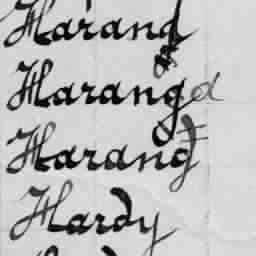 Harand
Harangd
Harand
Hardy